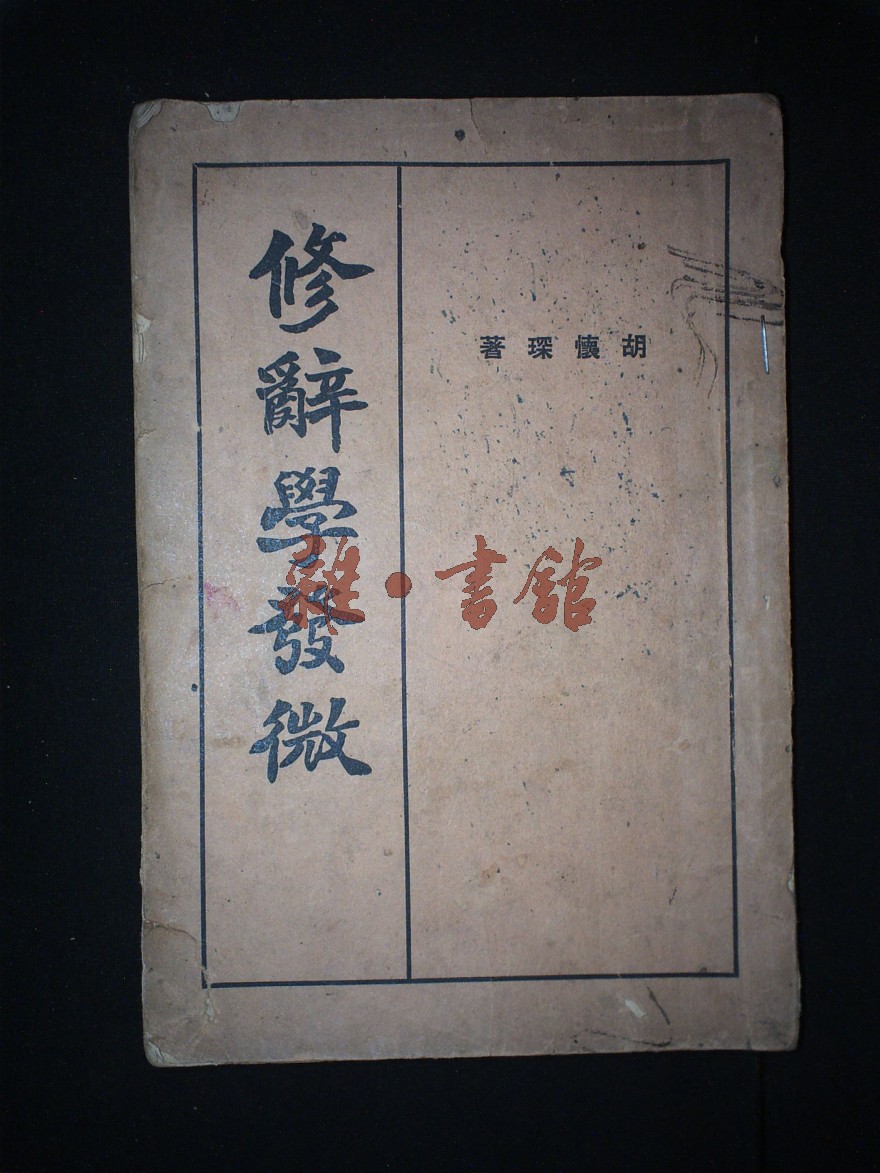 胡懷琛著
修辭學發微
雜·書館